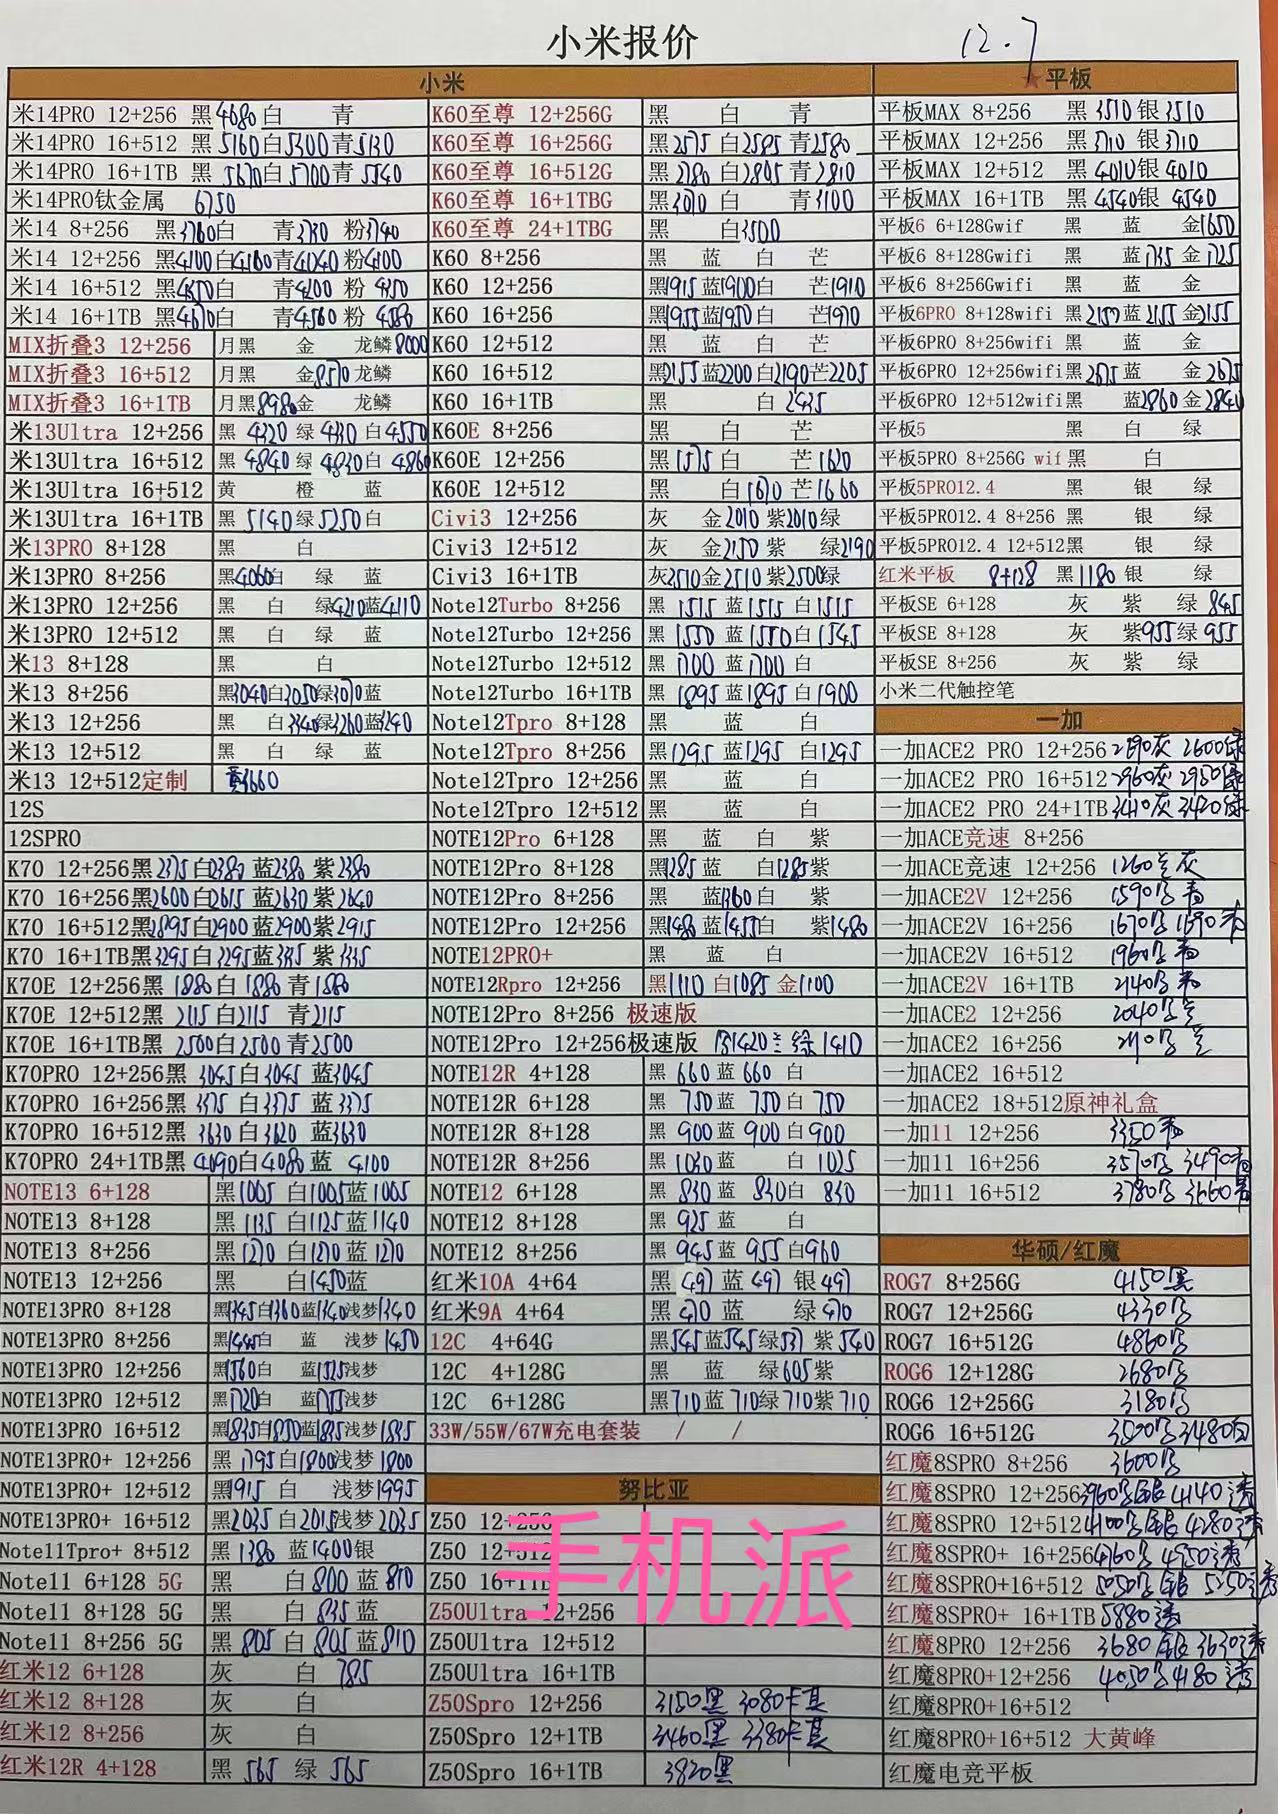 小米报价
12.7
小米
米14PRO 12+256 黑4680白 青
米14PRO 16+512 黑5160白5300青5130
米14PRO 16+1TB 黑5670白5700青5540
米14PRO钛金属 6750
米14 8+256 黑3760白 青3730 粉3740
米14 12+256 黑4100白4160青4040粉4100
米14 16+512 黑4350白 青4200粉
米14 16+1TB 黑4670白 青4560粉4580
MIX折叠3 12+256 月黑 金 龙鳞8000
MIX折叠3 16+512 月黑 金8570龙鳞
MIX折叠3 16+1TB 月黑8980金 龙鳞
米13Ultra 12+256 黑4320绿4330白4550
米13Ultra 16+512 黑4840绿4830白4860
米13Ultra 16+512 黄 橙 蓝
米13Ultra 16+1TB 黑5140绿5250白
米13PRO 8+128 黑 白
米13PRO 8+256 黑4060白 绿 蓝
米13PRO 12+256 黑 白 绿4210蓝4110
米13PRO 12+512 黑 白 绿 蓝
米13 8+128 黑 白
米13 8+256 黑3040白3050绿3070蓝
米13 12+256 黑 白3340绿3260蓝3240
米13 12+512 黑 白 绿 蓝
米13 12+512定制
12S
12SPRO
K70 12+256黑2375白2380蓝2380紫2380
K70 16+256黑2600白2615蓝2630紫2640
K70 16+512黑2895白2900蓝2900紫2915
K70 16+1TB黑3295白3295蓝3335紫3335
K70E 12+256黑1880白1880青1880
K70E 12+512黑2115白2115青2115
K70E 16+1TB黑2500白2500青2500
K70PRO 12+256黑3045白3045蓝3045
K70PRO 16+256黑3375白3375蓝3375
K70PRO 16+512黑3630白3620蓝3630
K70PRO 24+1TB黑4090白4080蓝4100
NOTE13 6+128 黑1005白1005蓝1005
NOTE13 8+128 黑1135白1125蓝1140
NOTE13 8+256 黑1270白1270蓝1270
NOTE13 12+256 黑 白1450蓝
NOTE13PRO 8+128 黑1345白1360蓝1340浅梦1340
NOTE13PRO 8+256 黑1445白 蓝 浅梦1450
NOTE13PRO 12+256 黑1560白 蓝1525浅梦
NOTE13PRO 12+512 黑1720白 蓝1755浅梦
NOTE13PRO 16+512 黑1835白1850蓝1835浅梦1835
NOTE13PRO+ 12+256 黑1795白1800浅梦1800
NOTE13PRO+ 12+512 黑1915白 浅梦1995
NOTE13PRO+ 16+512 黑2035白2015浅梦2035
Note11Tpro+ 8+512 黑1380蓝1400银
Note11 6+128 5G 黑 白800蓝810
Note11 8+128 5G 黑 白835蓝
Note11 8+256 5G 黑805白805蓝810
红米12 6+128 灰 白785
红米12 8+128 灰 白
红米12 8+256 灰 白
红米12R 4+128 黑565绿565
K60至尊 12+256G 黑 白 青
K60至尊 16+256G 黑2575白2585青2580
K60至尊 16+512G 黑2780白2805青2810
K60至尊 16+1TBG 黑3070白 青3100
K60至尊 24+1TBG 黑 白3500
K60 8+256 黑 蓝 白 芒
K60 12+256 黑1915蓝1900白 芒1910
K60 16+256 黑1955蓝1950白 芒1970
K60 12+512 黑 蓝 白 芒
K60 16+512 黑2155蓝2200白2190芒2205
K60 16+1TB 黑 白2435
K60E 8+256 黑 白 芒
K60E 12+256 黑1575白 芒1620
K60E 12+512 黑 白1670芒1660
Civi3 12+256 灰 金2010紫2010绿
Civi3 12+512 灰 金2150紫 绿2190
Civi3 16+1TB 灰2510金2510紫2500绿
Note12Turbo 8+256 黑1515蓝1515白1515
Note12Turbo 12+256 黑1550蓝1550白1545
Note12Turbo 12+512 黑1700蓝1700白
Note12Turbo 16+1TB 黑1895蓝1895白1900
Note12Tpro 8+128 黑 蓝 白
Note12Tpro 8+256 黑1295蓝1295白1295
Note12Tpro 12+256 黑 蓝 白
Note12Tpro 12+512 黑 蓝 白
NOTE12Pro 6+128 黑 蓝 白 紫
NOTE12Pro 8+128 黑1285蓝 白1285紫
NOTE12Pro 8+256 黑 蓝1360白 紫
NOTE12Pro 12+256 黑1480蓝1455白 紫1480
NOTE12PRO+ 黑 蓝 白
NOTE12Rpro 12+256 黑1110白1085金1100
NOTE12Pro 8+256 极速版
NOTE12Pro 12+256极速版 1420 绿1410
NOTE12R 4+128 黑660蓝660白
NOTE12R 6+128 黑750蓝750白750
NOTE12R 8+128 黑900蓝900白900
NOTE12R 8+256 黑1030蓝 白1025
NOTE12 6+128 黑830蓝830白830
NOTE12 8+128 黑925蓝 白
NOTE12 8+256 黑945蓝955白960
红米10A 4+64 黑497蓝497银497
红米9A 4+64 黑470蓝 绿470
12C 4+64G 黑545蓝545绿537紫540
12C 4+128G 黑 蓝 绿605紫
12C 6+128G 黑710蓝710绿710紫710
33W/55W/67W充电套装 / /
努比亚
Z50 12+256
Z50 12+512
Z50 16+1TB
Z50Ultra 12+256
Z50Ultra 12+512
Z50Ultra 16+1TB
Z50Spro 12+256 3150黑 3080卡其
Z50Spro 12+1TB 3460黑 3380卡其
Z50Spro 16+1TB 3820黑
手机派
★平板
平板MAX 8+256 黑3510银3510
平板MAX 12+256 黑3710银3710
平板MAX 12+512 黑4010银4010
平板MAX 16+1TB 黑4540银4540
平板6 6+128Gwif 黑 蓝 金1650
平板6 8+128Gwifi 黑 蓝1735金1725
平板6 8+256Gwifi 黑 蓝 金
平板6PRO 8+128wifi 黑2157蓝2155金2155
平板6PRO 8+256wifi 黑 蓝 金
平板6PRO 12+256wifi黑2675蓝 金2675
平板6PRO 12+512wifi黑 蓝2860金2840
平板5 黑 白 绿
平板5PRO 8+256G wif黑 白
平板5PRO12.4 黑 银 绿
平板5PRO12.4 8+256 黑 银 绿
平板5PRO12.4 12+512黑 银 绿
红米平板 8+128 黑1180银 绿
平板SE 6+128 灰 紫 绿845
平板SE 8+128 灰 紫955绿955
平板SE 8+256 灰 紫 绿
小米二代触控笔
一加
一加ACE2 PRO 12+256 灰 2600绿
一加ACE2 PRO 16+512 2960灰 2950绿
一加ACE2 PRO 24+1TB 3410灰 3420绿
一加ACE竞速 8+256
一加ACE竞速 12+256 1260兰灰
一加ACE2V 12+256 1590黑青
一加ACE2V 16+256 1670黑1690青
一加ACE2V 16+512 1960黑青
一加ACE2V 16+1TB 2140黑青
一加ACE2 12+256 2040黑兰
一加ACE2 16+256
一加ACE2 16+512
一加ACE2 18+512原神礼盒
一加11 12+256 3350青
一加11 16+256 3570黑 3490青
一加11 16+512 3780黑 3660青
华硕/红魔
ROG7 8+256G 4150黑
ROG7 12+256G 4330黑
ROG7 16+512G 4860黑
ROG6 12+128G 2680黑
ROG6 12+256G 3180黑
ROG6 16+512G 3500黑3480白
红魔8SPRO 8+256 3600黑
红魔8SPRO 12+256 3960黑银 4140透
红魔8SPRO 12+512 4100黑银 4280透
红魔8SPRO+ 16+256 4760黑 4950透
红魔8SPRO+16+512 5050黑银 5250透
红魔8SPRO+ 16+1TB 5880透
红魔8PRO 12+256 3680黑银 3630透
红魔8PRO+12+256 4050黑4180透
红魔8PRO+16+512
红魔8PRO+16+512 大黄峰
红魔电竞平板